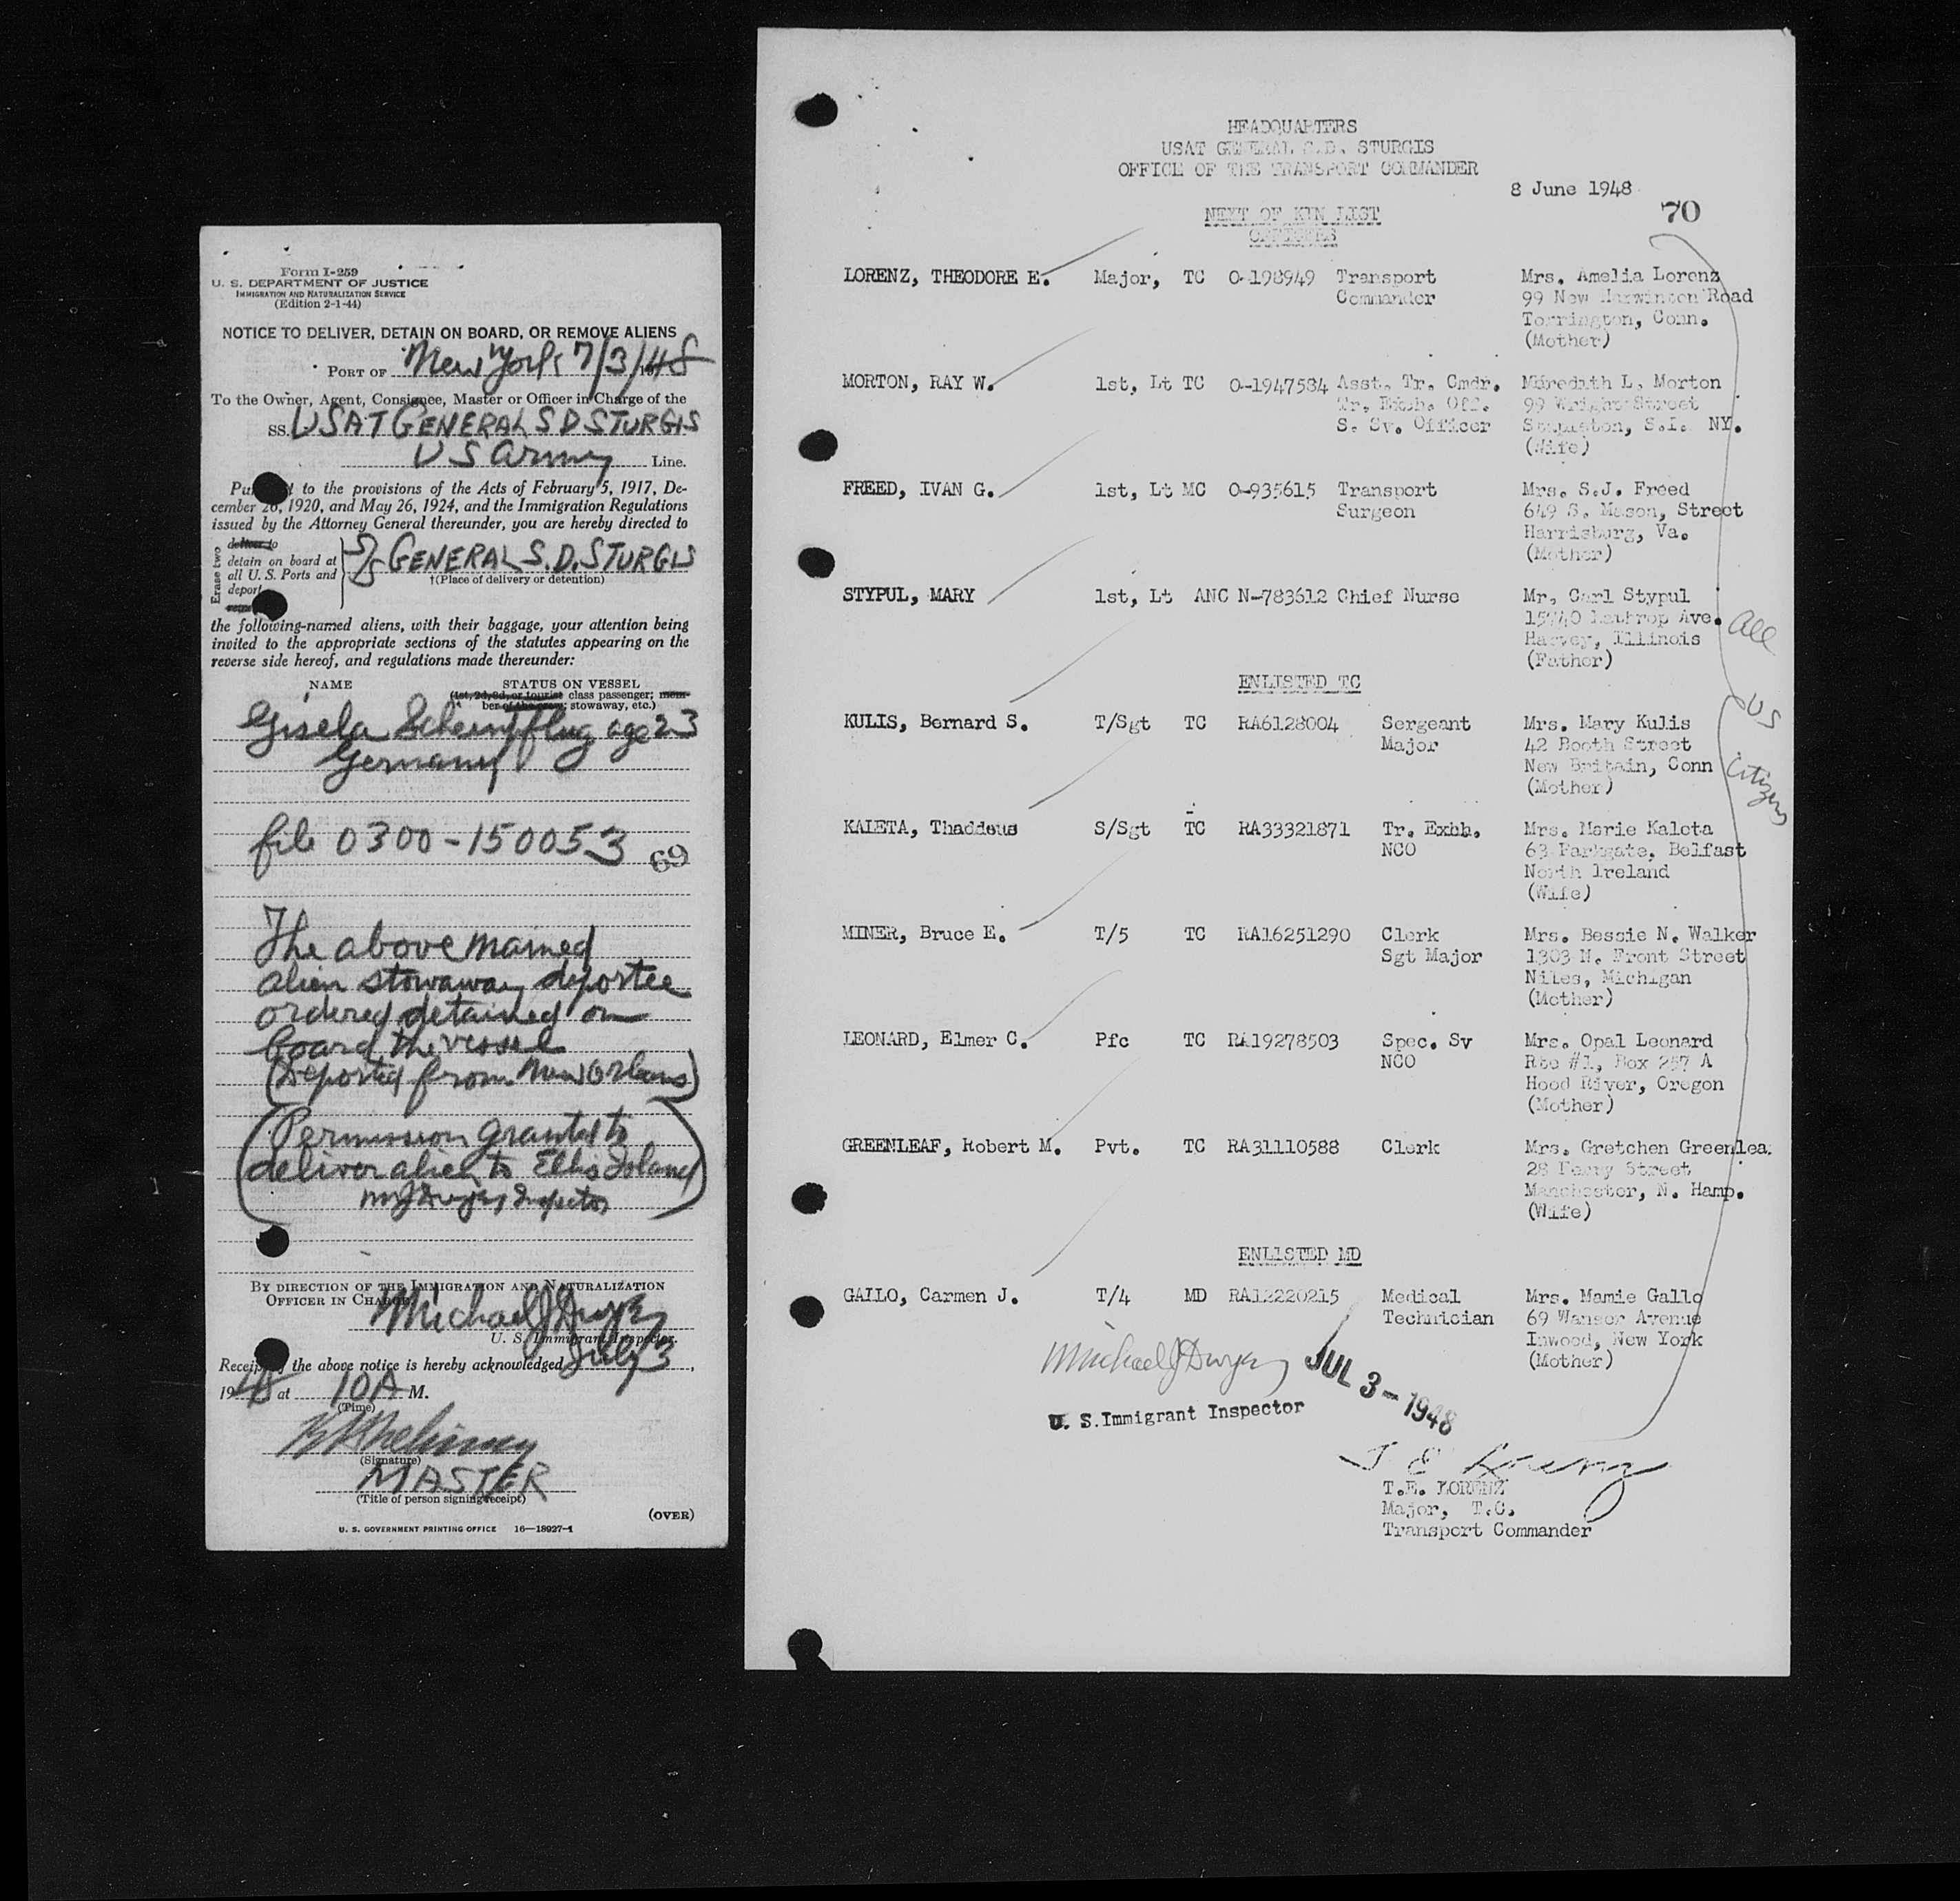 Form I-259
U. S. DEPARTMENT OF JUSTICE
IMMIGRATION AND NATURALIZATION SERVICE
(Edition 2-1-44)
NOTICE TO DELIVER, DETAIN ON BOARD, OR REMOVE ALIENS
PORT OF New York 7/3/48
To the Owner, Agent, Consignee, Master or Officer in Charge of the
SS. USAT GENERAL S D STURGIS
US Army Line.
to the provisions of the Acts of February 5, 1917, De-
cember 26, 1920, and May 26, 1924, and the Immigration Regulations
issued by the Attorney General thereunder, you are hereby directed to
Erase two
deliver to
detain on board at
all U.S. Ports and
deport
S/S GENERAL S.D. STURGIS
†(Place of delivery or detention)
the following-named aliens, with their baggage, your attention being
invited to the appropriate sections of the statutes appearing on the
reverse side hereof, and regulations made thereunder:
NAME STATUS ON VESSEL
(1st, 2d, 3d, or tourist class passenger; mem-
ber of the crew; stowaway, etc.)
Gisela Scheinpflug age 23
Germany
file 0300-150053
69
The above named
alien stowaway deportee
ordered detained on
board the vessel
(Deported from New Orleans)
(Permission granted to
deliver alien to Ellis Island
MJ Dwyer Inspector)
BY DIRECTION OF THE IMMIGRATION AND NATURALIZATION
OFFICER IN CHARGE
Michael J Dwyer
U. S. Immigrant Inspector.
Receipt of the above notice is hereby acknowledged July 3,
1948 at 10A M.
(Time)
(Signature)
MASTER
(Title of person signing receipt)
(OVER)
U. S. GOVERNMENT PRINTING OFFICE 16—18927-1
HEADQUARTERS
USAT GENERAL S.D. STURGIS
OFFICE OF THE TRANSPORT COMMANDER
8 June 1948
70
NEXT OF KIN LIST
OFFICERS
LORENZ, THEODORE E. Major, TC O-198949 Transport Mrs. Amelia Lorenz
Commander 99 New Harwinton Road
Torrington, Conn.
(Mother)
MORTON, RAY W. 1st, Lt TC O-1947584 Asst. Tr. Cmdr. Meredith L. Morton
Tr. Exbh. Off. 99 Wright Street
S. Sv. Officer Stapleton, S.I. NY.
(Wife)
FREED, IVAN G. 1st, Lt MC O-935615 Transport Mrs. S.J. Freed
Surgeon 649 S. Mason, Street
Harrisburg, Va.
(Mother)
STYPUL, MARY 1st, Lt ANC N-783612 Chief Nurse Mr. Carl Stypul
15740 Lathrop Ave.
Harvey, Illinois
(Father)
All
US
Citizens
ENLISTED TC
KULIS, Bernard S. T/Sgt TC RA6128004 Sergeant Mrs. Mary Kulis
Major 42 Booth Street
New Britain, Conn
(Mother)
KALETA, Thaddeus S/Sgt TC RA33321871 Tr. Exbh. Mrs. Marie Kaleta
NCO 63 Parkgate, Belfast
North Ireland
(Wife)
MINER, Bruce E. T/5 TC RA16251290 Clerk Mrs. Bessie N. Walker
Sgt Major 1303 N. Front Street
Niles, Michigan
(Mother)
LEONARD, Elmer C. Pfc TC RA19278503 Spec. Sv Mrs. Opal Leonard
NCO Rte #1, Box 257 A
Hood River, Oregon
(Mother)
GREENLEAF, Robert M. Pvt. TC RA31110588 Clerk Mrs. Gretchen Greenlea
28 Street
Manchester, N. Hamp.
(Wife)
ENLISTED MD
GALLO, Carmen J. T/4 MD RA12220215 Medical Mrs. Mamie Gallo
Technician 69 Wanser Avenue
Inwood, New York
(Mother)
Michael J Dwyer
JUL 3-1948
U. S. Immigrant Inspector
T E Lorenz
T.E. LORENZ
Major, T.C.
Transport Commander